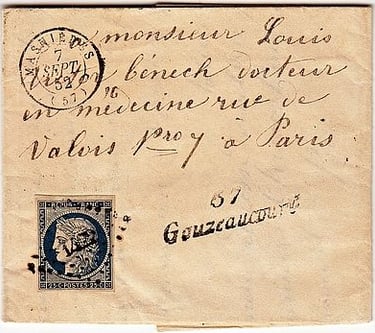 MASNIÈRES
7
SEPT.
52
(57)
monsieur Louis
bénech docteur
en médecine rue de
valois nro 7 à Paris
57
Gouzeaucourt
REPUB. FRANC.
25 C. POSTES 25 C.